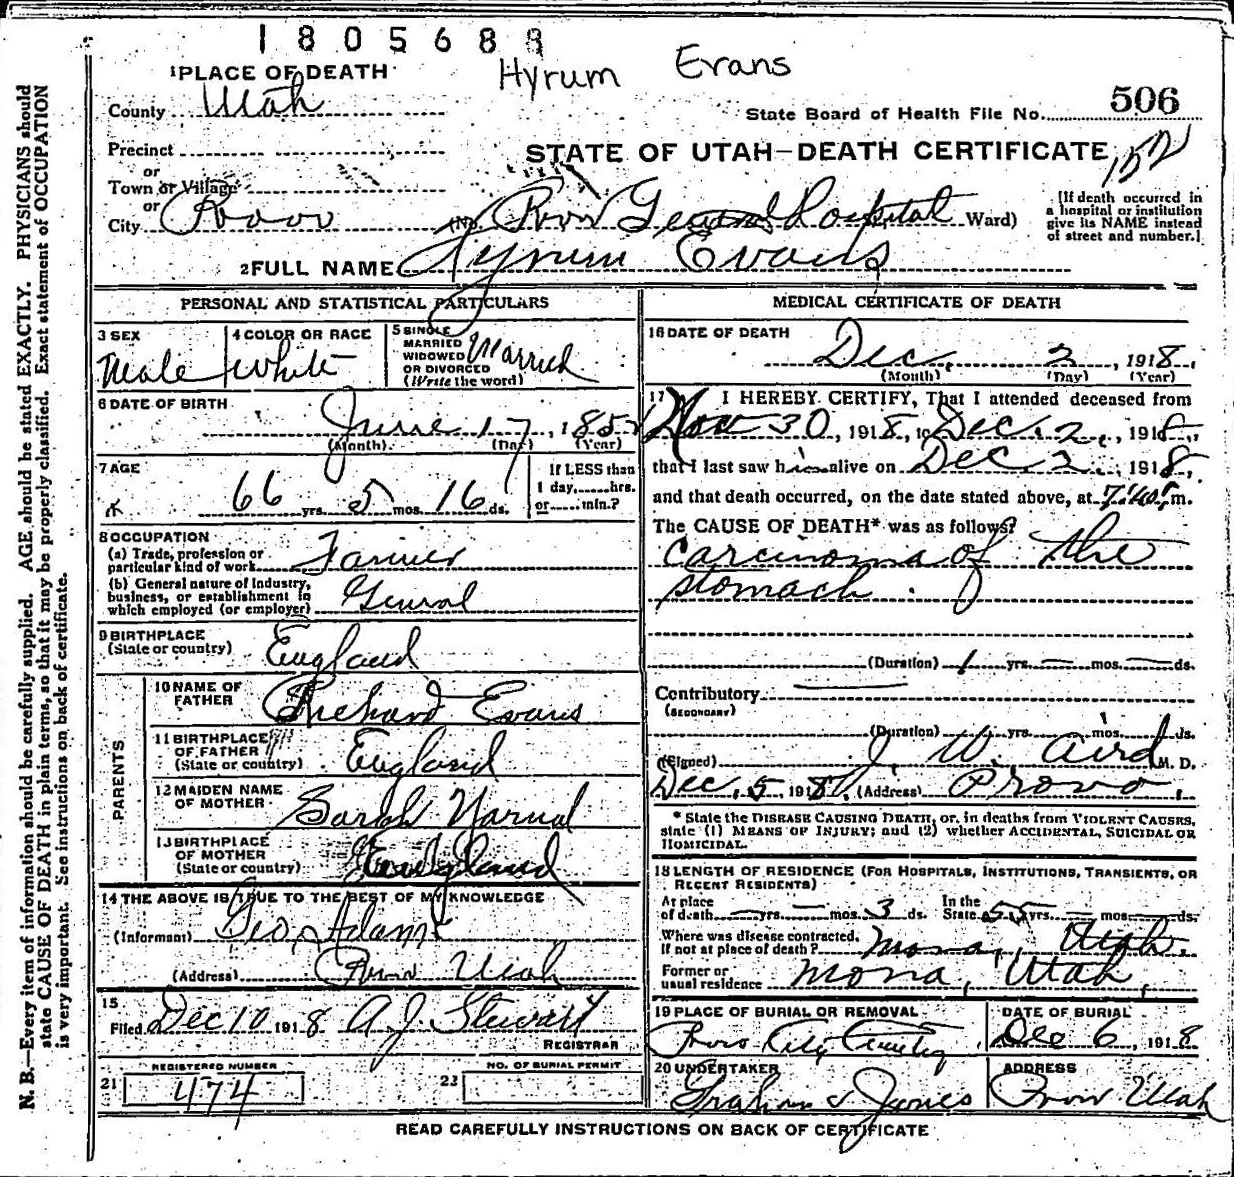 1805688
Hyrum Evans
1 PLACE OF DEATH
County Utah
State Board of Health File No. 506
Precinct
STATE OF UTAH—DEATH CERTIFICATE
152
or
Town or Village
or
City Provo (No. Provo General Hospital Ward)
[If death occurred in
a hospital or institution
give its NAME instead
of street and number.]
2 FULL NAME Hyrum Evans
PERSONAL AND STATISTICAL PARTICULARS
3 SEX
Male
4 COLOR OR RACE
White
5 SINGLE
MARRIED
WIDOWED
OR DIVORCED
(Write the word)
Married
6 DATE OF BIRTH
June 17, 1852
(Month) (Day) (Year)
7 AGE
66 yrs. 5 mos. 16 ds.
If LESS than
1 day, hrs.
or min.?
8 OCCUPATION
(a) Trade, profession or
particular kind of work Farmer
(b) General nature of Industry,
business, or establishment in
which employed (or employer) General
9 BIRTHPLACE
(State or country) England
PARENTS
10 NAME OF
FATHER Richard Evans
11 BIRTHPLACE
OF FATHER
(State or country) England
12 MAIDEN NAME
OF MOTHER Sarah
13 BIRTHPLACE
OF MOTHER
(State or country) England
14 THE ABOVE IS TRUE TO THE BEST OF MY KNOWLEDGE
(Informant) Geo. Adams
(Address) Provo Utah
15
Filed Dec 10 1918 A. J. Stewart
REGISTRAR
REGISTERED NUMBER
21 474
NO. OF BURIAL PERMIT
22
MEDICAL CERTIFICATE OF DEATH
16 DATE OF DEATH
Dec. 2, 1918,
(Month) (Day) (Year)
17 I HEREBY CERTIFY, That I attended deceased from
Nov 30, 1918, to Dec. 2., 1918,
that I last saw him alive on Dec 2., 1918,
and that death occurred, on the date stated above, at 7:40 m.
The CAUSE OF DEATH* was as follows?
carcinoma of the
stomach.
(Duration) 1 yrs. — mos. — ds.
Contributory
(SECONDARY)
(Duration) yrs. mos. ds.
(Signed) J. W. Aird M. D.
Dec. 5, 1918 (Address) Provo,
* State the DISEASE CAUSING DEATH, or, in deaths from VIOLENT CAUSES,
state (1) MEANS OF INJURY; and (2) whether ACCIDENTAL, SUICIDAL OR
HOMICIDAL.
18 LENGTH OF RESIDENCE (FOR HOSPITALS, INSTITUTIONS, TRANSIENTS, OR
RECENT RESIDENTS)
At place
of death — yrs. — mos. 3 ds.
In the
State 55 yrs. — mos. — ds.
Where was disease contracted,
If not at place of death? Mona, Utah.
Former or
usual residence Mona, Utah,
19 PLACE OF BURIAL OR REMOVAL
Provo City Cemetery
DATE OF BURIAL
Dec 6, 1918
20 UNDERTAKER
Graham & Jones
ADDRESS
Provo Utah
READ CAREFULLY INSTRUCTIONS ON BACK OF CERTIFICATE
N. B.—Every item of information should be carefully supplied. AGE should be stated EXACTLY. PHYSICIANS should
state CAUSE OF DEATH in plain terms, so that it may be properly classified. Exact statement of OCCUPATION
is very important. See instructions on back of certificate.